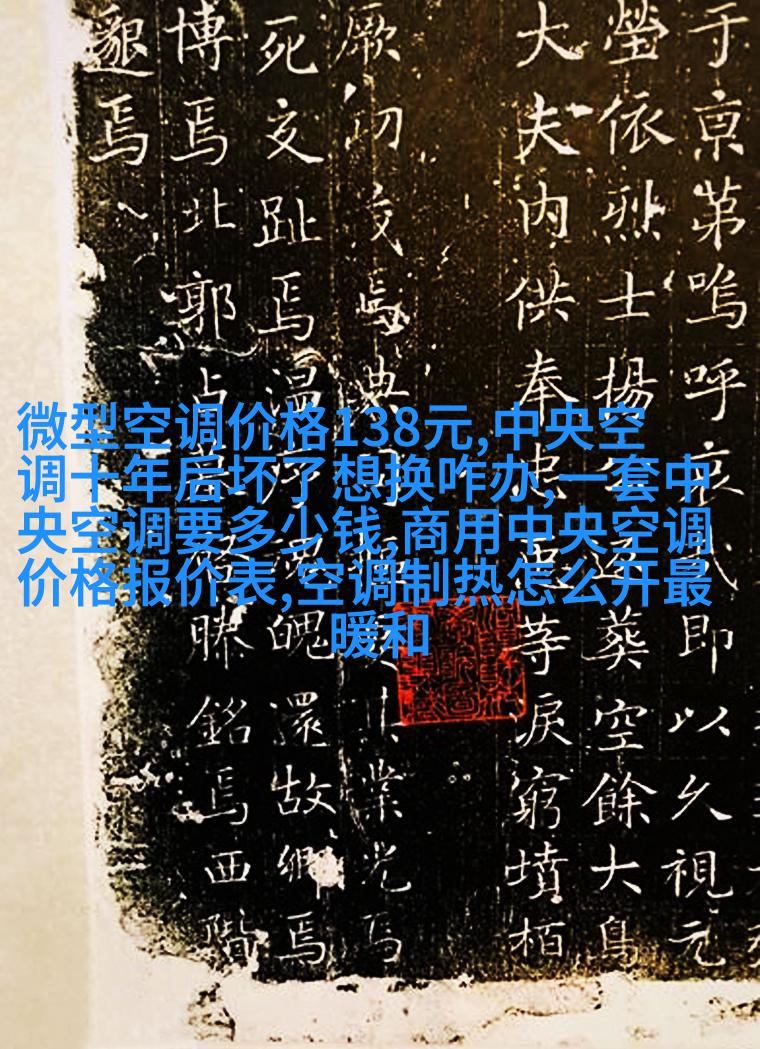 微型空调价格138元,中央空
调十年后坏了想换咋办,一套中
央空调要多少钱,商用中央空调
价格报价表,空调制热怎么开最
暖和
于京第嗚呼哀哉即以久視元
塋依烈士揚葬空餘大鳥
大夫内供奉忠等淚窮墳栢
厥初焉典司業光焉
死交趾焉温序魂魄還故鄉焉
博焉北郭占銘焉西階
邈焉